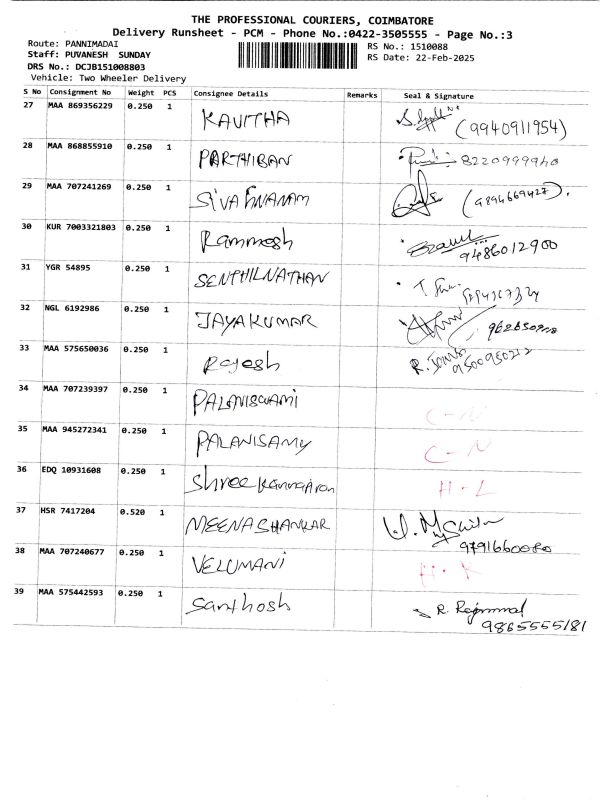 THE PROFESSIONAL COURIERS, COIMBATORE
Delivery Runsheet - PCM - Phone No.:0422-3505555 - Page No.:3
Route: PANNIMADAI
RS No.: 1510088
Staff: PUVANESH SUNDAY
RS Date: 22-Feb-2025
DRS No.: DCJB151008803
Vehicle: Two Wheeler Delivery
S No Consignment No Weight PCS Consignee Details Remarks Seal & Signature
27 MAA 869356229 0.250 1 KAVITHA (9940911954)
28 MAA 868855910 0.250 1 PARTHIBAN 8220999940
29 MAA 707241269 0.250 1 SIVAGNANAM (9894669427).
30 KUR 7003321803 0.250 1 Rammosh 9486012900
31 YGR 54895 0.250 1 SENTHILNATHAN
32 NGL 6192986 0.250 1 JAYAKUMAR
33 MAA 575650036 0.250 1 Rajesh 9500950212
34 MAA 707239397 0.250 1 PALANISWAMI C-N
35 MAA 945272341 0.250 1 PALANISAMY C-N
36 EDQ 10931608 0.250 1 H-L
37 HSR 7417204 0.520 1 MEENASHANKAR 9791660080
38 MAA 707240677 0.250 1 VELUMANI H-K
39 MAA 575442593 0.250 1 Santhosh R. Rajammal
9865555181